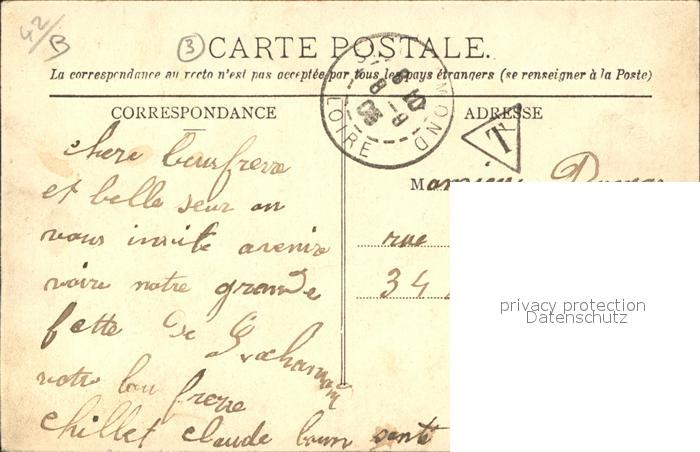 42/B
3 CARTE POSTALE.
La correspondance au recto n'est pas acceptée par tous les pays étrangers (se renseigner à la Poste)
CORRESPONDANCE
ADRESSE
MOND
LOIRE
T
chere beaufrere
et belle seur on
vous invite avenir
voire notre grande
fette de
votre bau frere
chillet claude bonn santé
Monsieur
rue
34
privacy protection
Datenschutz